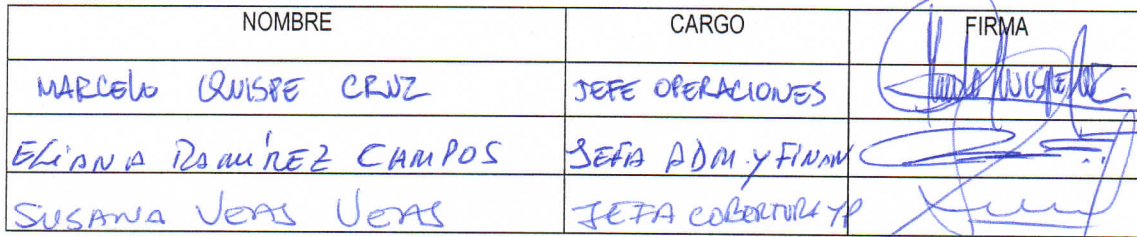 NOMBRE CARGO FIRMA
MARCELO QUISPE CRUZ JEFE OPERACIONES
ELIANA RAMÍREZ CAMPOS JEFA ADM. Y FINAN
SUSANA VEAS VEAS JEFA COBERTURA YP